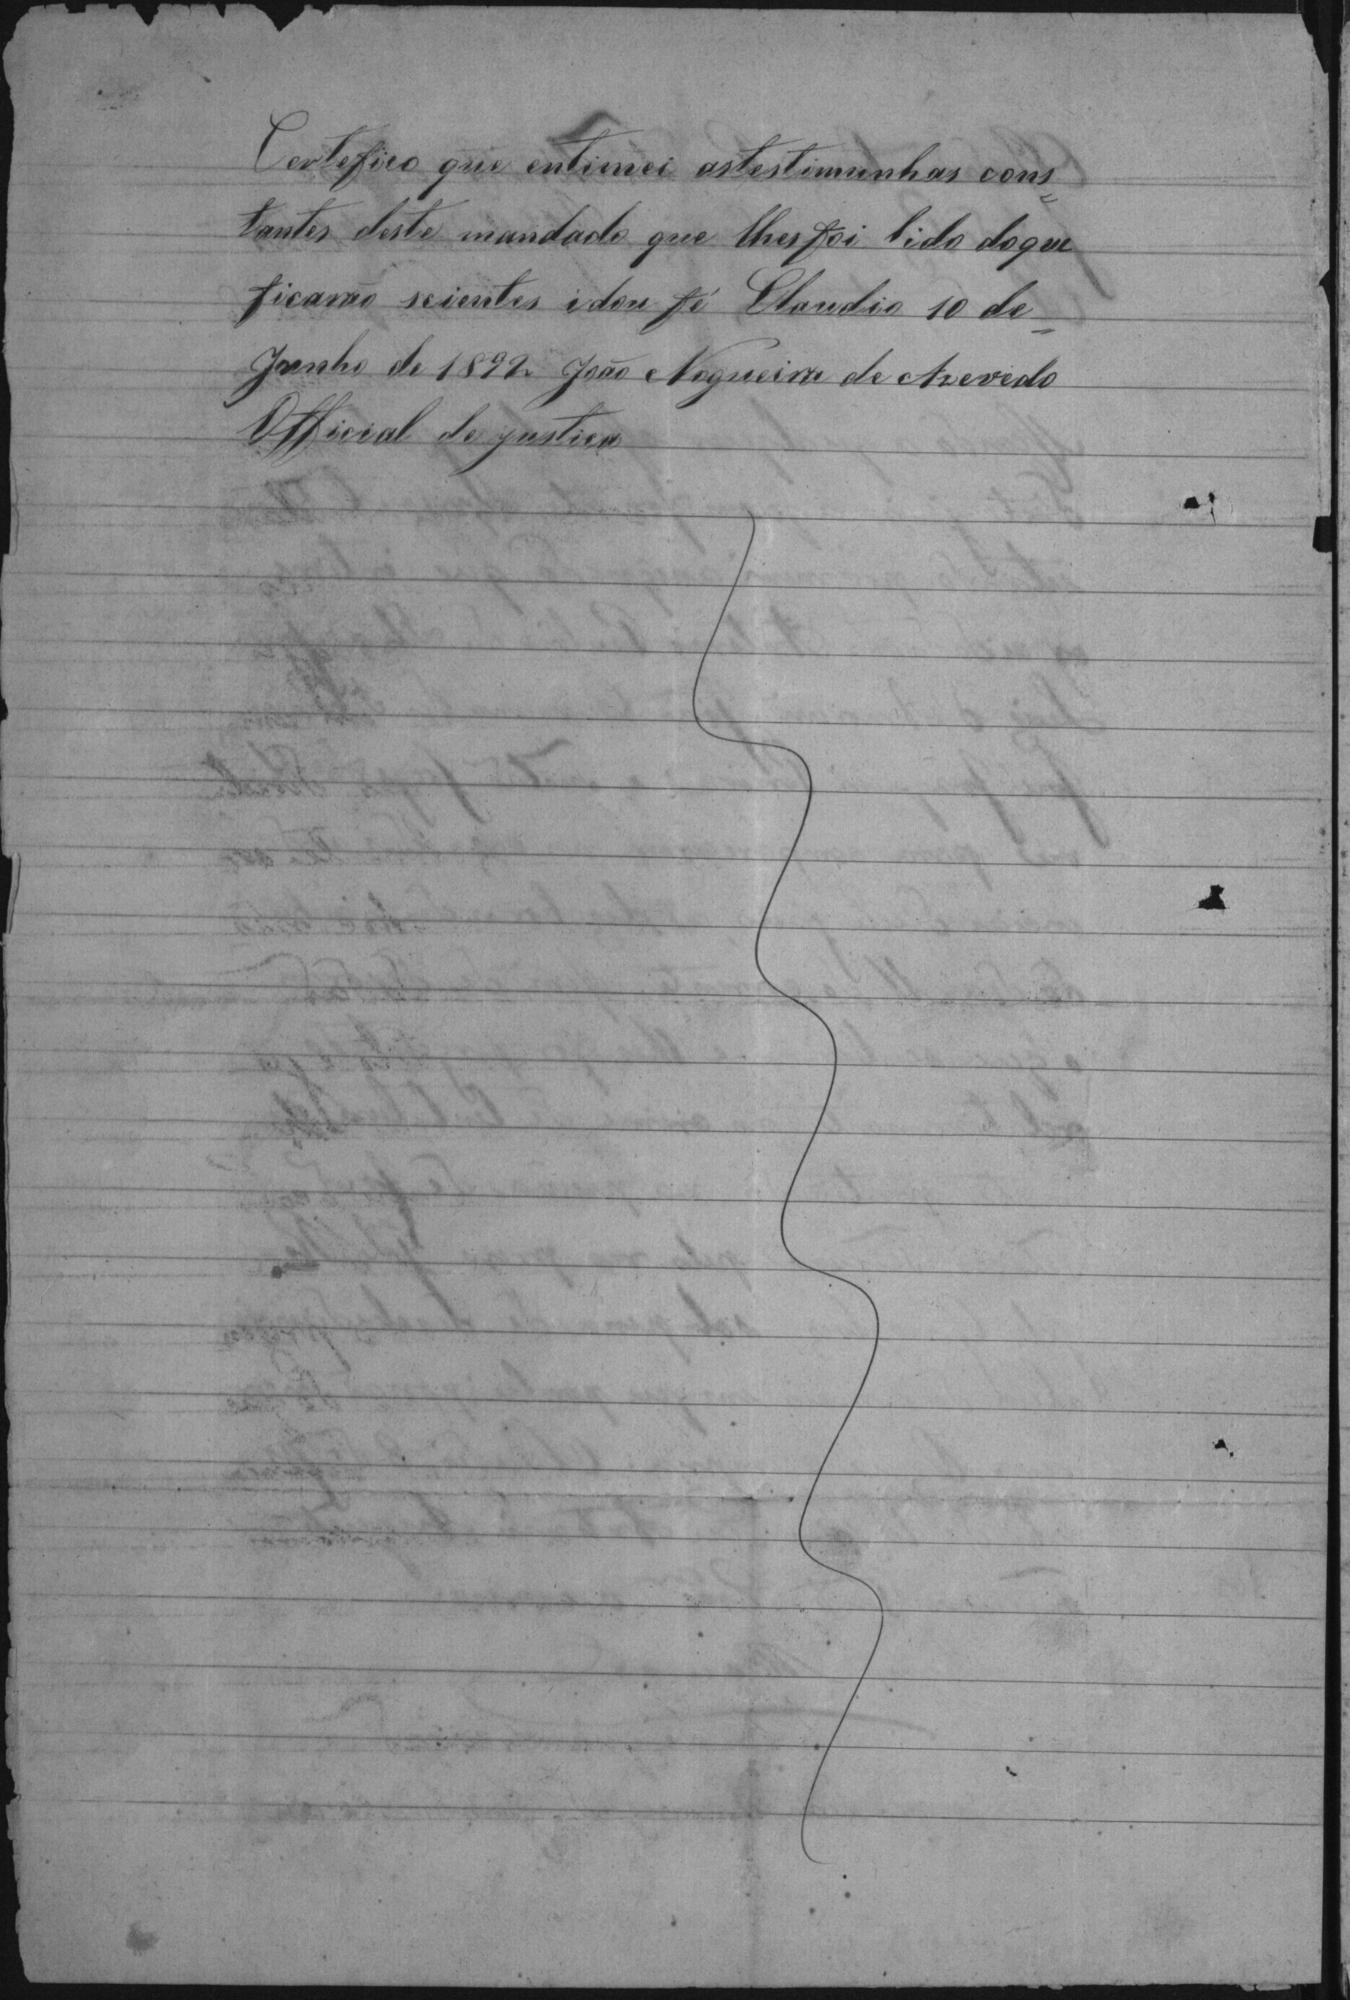 Certefico que entimei astestimunhas cons=
tantes deste mandado que lhes foi lido doque
ficarão scientes i dou fé Claudio 10 de=
Junho de 1892 João Nogueira de Azevedo
Official de justica